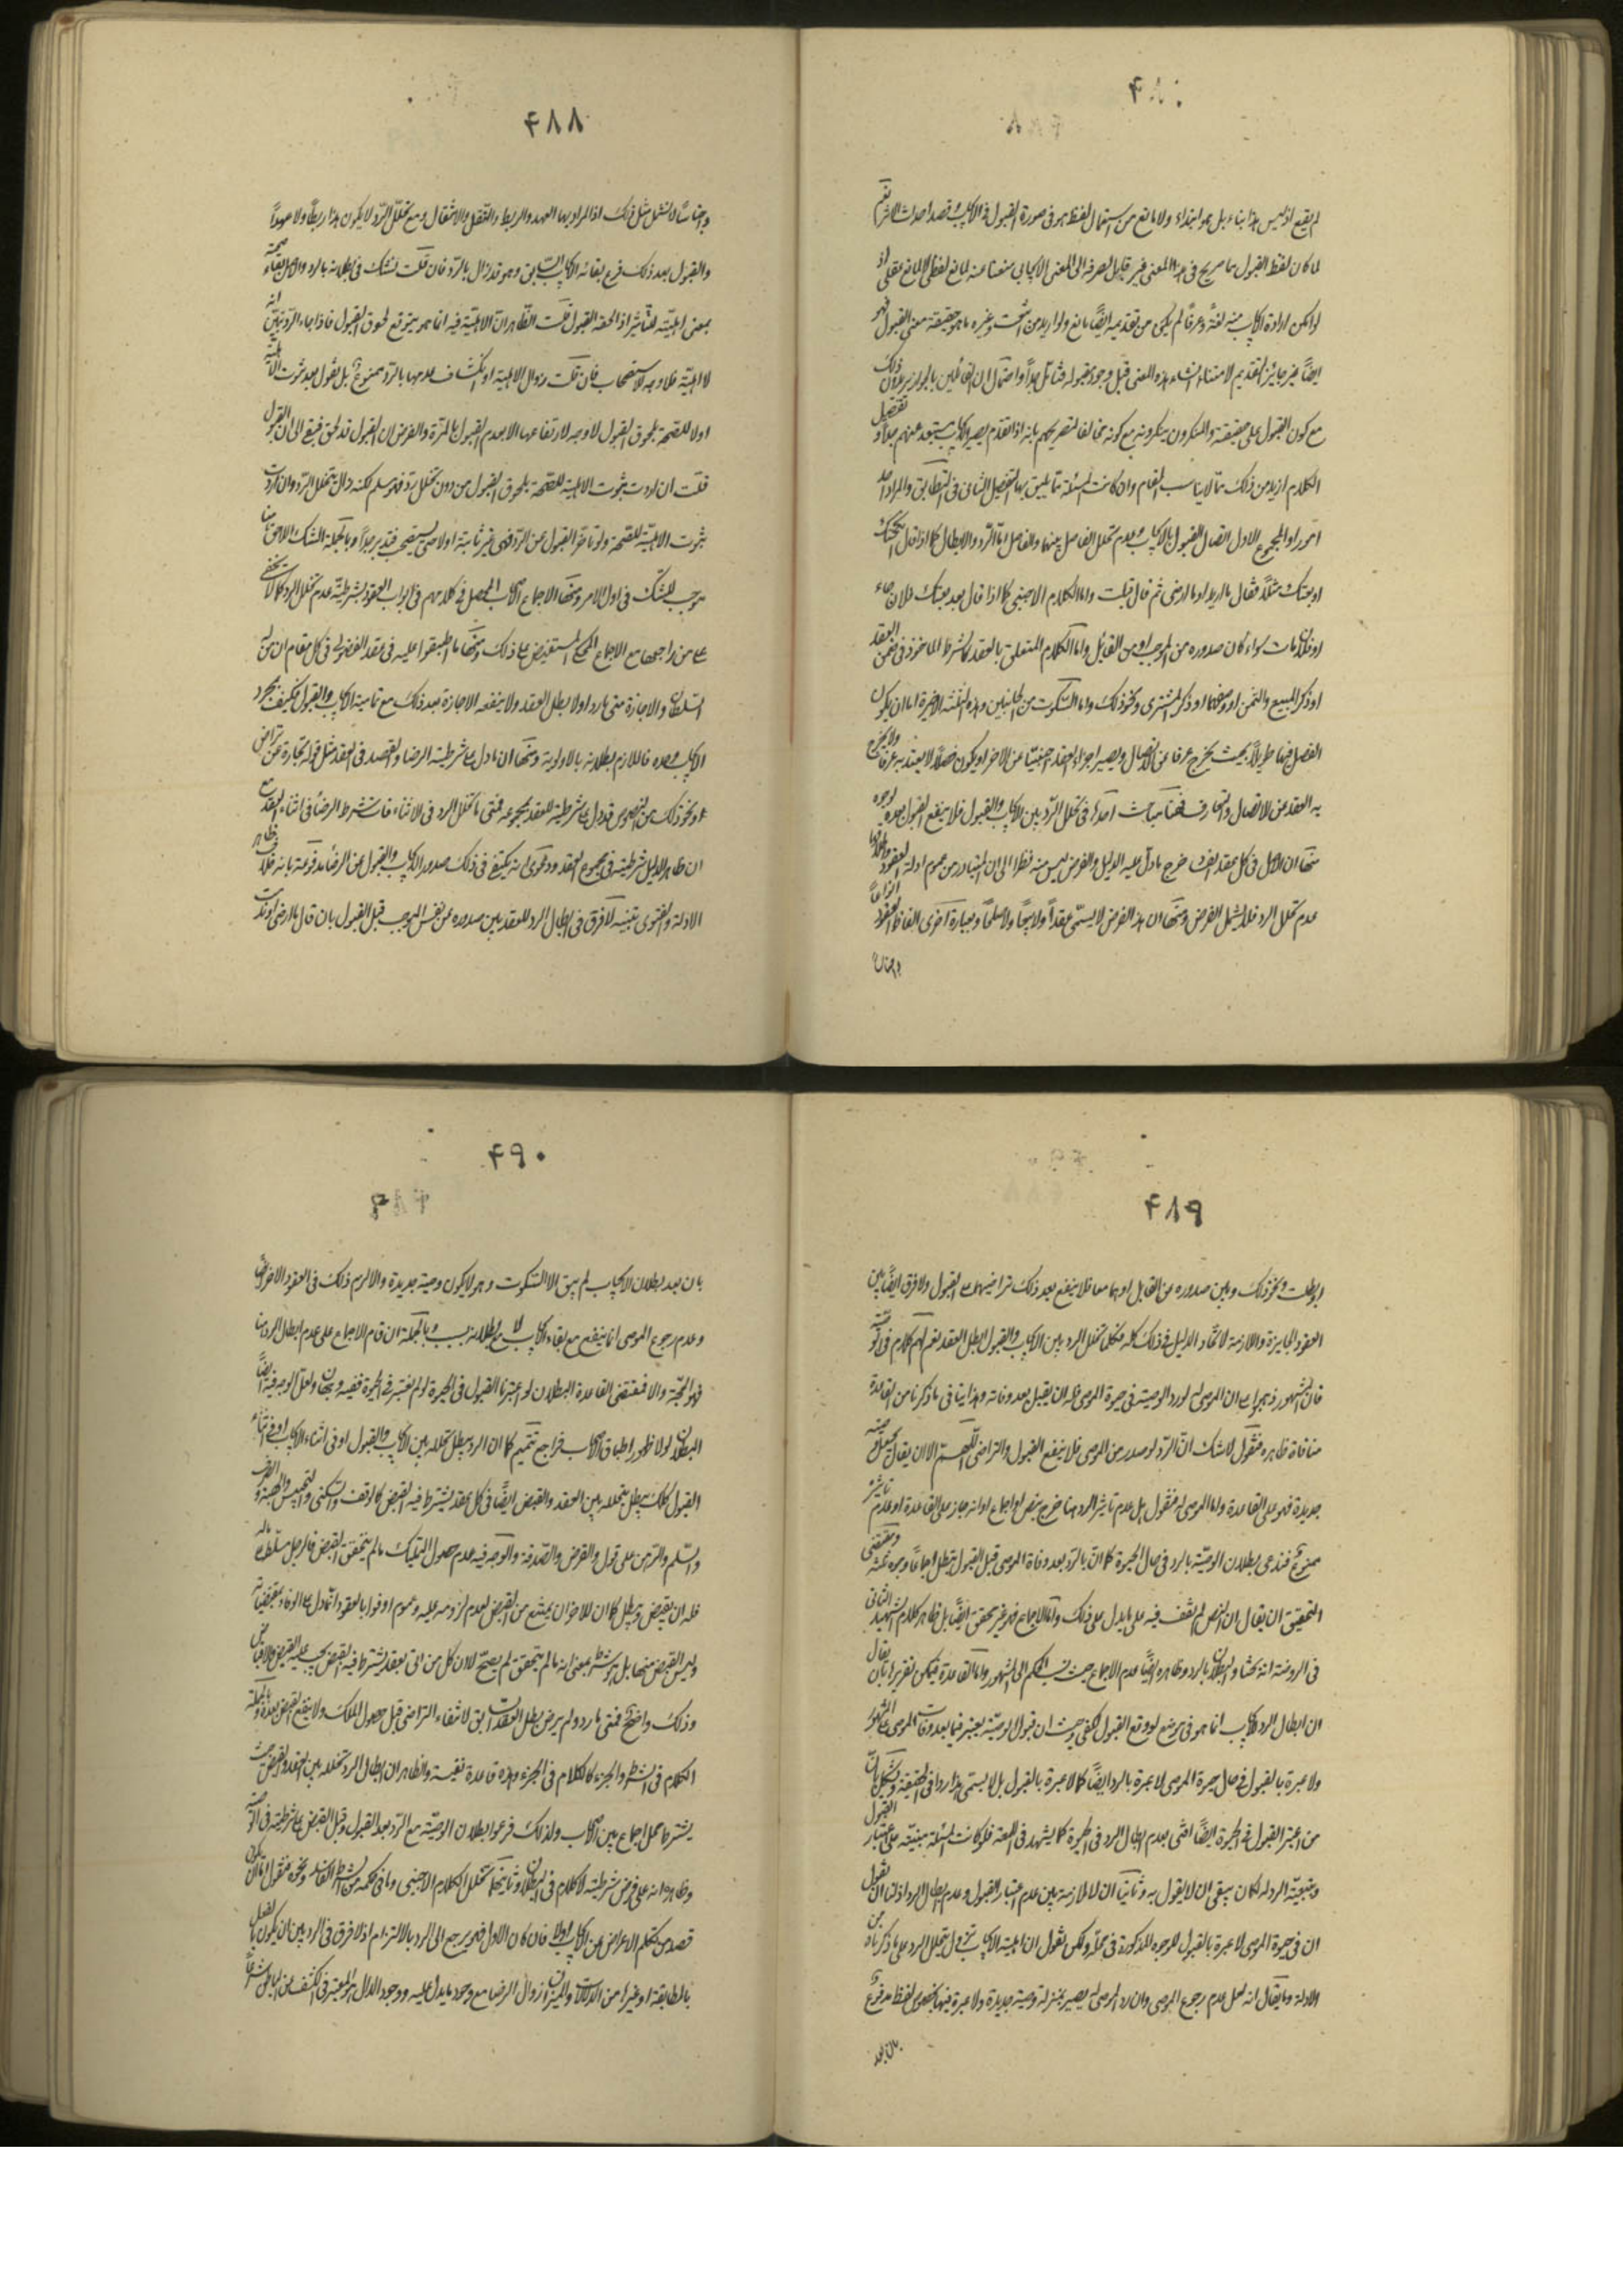 لم يقع اذ ليس هذا بناء بل هو ابتداء ولا مانع من استعمال لفظ هو فى صورة القبول فى الايجاب وقصد احداث الاثر نعم
لما كان لفظ القبول مما صريح فى هذا المعنى غير قابل لصرفه الى المعنى الايجابى منعنا عنه لمانع لفظى لا لمانع عقلى اذ
لو امكن ارادة الايجاب منه لغة وعرفا لم يكن من تقديمه ايضا مانع ولو اريد من اشتريت وغيره ما هو حقيقة معنى القبول فهو
ايضا غير جايز التقديم لامتناع انشاء هذا المعنى قبل وجود مقبوله فتامل جدا واحتمال ان القائلين بالجواز يريدون ذلك
مع كون القبول على حقيقته والمنكرون ينكرونه مع كونه مخالفا لتصريحهم بانه اذا تقدم يصير الايجاب مستبعد عنهم جدا وتفصيل
الكلام ازيد من ذلك مما لا يناسب المقام وان كانت المسئلة مما يليق بها التفصيل الثانى فى التطابق والمراد احد
امور او المجموع الاول اتصال القبول بالايجاب وعدم تخلل الفاصل بينهما والفاصل اما الرد والابطال كما اذا قال انكحتك
او بعتك مثلا فقال ما اريد او ما ارضى ثم قال قبلت واما الكلام الاجنبى كما اذا قال بعد بعتك فلان جاء
او فلان مات سواء كان صدوره من الموجب او من القابل واما الكلام المتعلق بالعقد كالشرط الماخوذ فى ضمن العقد
او ذكر المبيع والثمن او وصفهما او ذكر المشترى ونحو ذلك واما السكوت من الجانبين وهذه الثلثة الاخيرة اما ان يكون
الفصل فيها طويلا بحيث يخرج عرفا عن الاتصال ويصير اجزاء العقد اجنبيا عن الاخر او يكون فصلا لا يعتد به عرفا ولا يخرج
به العقد عن الاتصال والتعارف فهنا مباحث احدها فى تخلل الرد بين الايجاب والقبول فلا ينفع القبول بعده لوجوه
منها ان الاصل فى كل عقد الفساد خرج ما دل عليه الدليل والفرض ليس منه نظرا الى ان المتبادر من عموم ادلة العقود واطلاقها
عدم تخلل الرد فلا يشمل الفرض ومنها ان هذا الفرض لا يسمى عقدا ولا بيعا ولا صلحا وبعبارة اخرى الفاظ العقود انواعا
واجناسا
٤٨٨
واجناسا لا تشمل مثل ذلك اذ المراد بها العهد والربط والنقل والانتقال ومع تخلل الرد لا يكون هذا ربطا ولا عهدا
والقبول بعد ذلك فرع بقائه الايجاب السابق وهو قد زال بالرد فان قلت نشك فى بطلانه بالرد والاصل بقاء صحته
بمعنى اهليته للتاثير اذا لحقه القبول قلت الظاهر ان الاهلية فيه انما هو بتوقع لحوق القبول فاذا جاء الرد تبين انه
لا اهلية فلا وجه للاستصحاب فان قلت زوال الاهلية او انكشاف عدمها بالرد ممنوع بل نقول بعد ثبوت الاهلية
اولا للصحة بلحوق القبول لا وجه لارتفاعها الا بعدم القبول بالمرة والفرض ان القبول قد لحق فيبقى الى ان القبول
قلت ان اردت ثبوت الاهلية للصحة بلحوق القبول من دون تخلل رد فهو مسلم لكنه زال بتخلل الرد وان اردت
ثبوت الاهلية للصحة ولو تاخر القبول عن الرد فهى غير ثابتة اولا حتى يستصحب فتدبر جدا وبالجملة الشك اللاحق هنا
موجب للشك فى اول الامر ومنها الاجماع المحصل من كلامهم فى ابواب العقود بشرطية عدم تخلل الرد كما لا يخفى
على من راجعها مع الاجماع المحكى المستفيض على ذلك ومنها ما اطبقوا عليه فى عقد الفضولى فى كل مقام ان من له
السلطان والاجازة متى ما رد اولا بطل العقد ولا ينفعه الاجازة بعد ذلك مع تمامية الايجاب والقبول فكيف بمجرد
الايجاب وحده فاللازم بطلانه بالاولوية ومنها ان ما دل على شرطية الرضا والقصد فى العقد مثل قوله تجارة عن تراض
او نحو ذلك من النصوص قد دل على شرطيته للعقد بمجموعه فمتى ما تخلل الرد فى الاثناء فات شرط الرضا فى اثناء العقد مع
ان ظاهر الدليل شرطيته فى مجموع العقد ودعوى انه يكتفى فى ذلك صدور الايجاب والقبول عن الرضا مدفوعة بانه خلاف ظاهر
الادلة والفتوى تنبيه لا فرق فى ابطال الرد للعقد بين صدوره عن نفس الموجب قبل القبول بان قال ما ارضى او رددت
٤٨٩
او ابطلت ونحو ذلك وبين صدوره من القابل او هما معا فلا ينفع بعد ذلك تراضيهما على القبول ولا فرق ايضا بين
العقود الجايزة واللازمة لاتحاد الدليل فى ذلك كله فكلما تخلل الرد بين الايجاب والقبول بطل العقد نعم لهم كلام فى الوصية
فان المشهور ذهبوا على ان الموصى له لو رد الوصية فى حيوة الموصى فله ان يقبل بعد وفاته وهذا ينافى ما ذكرنا من القاعدة
منافاة ظاهرة فنقول لا شك ان الرد لو صدر من الموصى فلا ينفع القبول والتراضى اللهم الا ان يقال بجعل وصية
جديدة فهو على القاعدة واما الموصى له فنقول هل عدم تاثير الرد هنا خرج بنص او اجماع او انه جاز على القاعدة او عدم تاثيره
ممنوع فندعى بطلان الوصية بالرد فى حال الحيوة كما ان بالرد بعد وفاة الموصى قبل القبول يبطل اجماعا وجوه ثلثة ومقتضى
التحقيق ان يقال ان النص لم نقف فيه على ما يدل على ذلك واما الاجماع فهو غير محقق ايضا بل ظاهر كلام الشهيد الثانى
فى الروضة انه بحثا والبطلان بالرد وظاهره ايضا عدم الاجماع حيث نسب الحكم الى المشهور واما القاعدة فيمكن تقريرها بان يقال
ان ابطال الرد للايجاب انما هو فى موضع لو وقع القبول لكفى وحيث ان قبول الوصية يعتبر فيما بعد وفات الموصى على المشهور
ولا عبرة بالقبول فى حال حيوة الموصى لا عبرة بالرد ايضا كما لا عبرة بالقبول بل لا يسمى هذا ردا فى الحقيقة ويشكل بان
من اعتبر القبول فى الحيوة ايضا افتى بعدم ابطال الرد فى الحيوة كالشهيد فى اللمعة فلو كانت المسئلة مبنية على اعتبار القبول
وتبعية الرد له لكان ينبغى ان لا يقول به وثانيا ان لا ملازمة بين عدم اعتبار القبول وعدم ابطال الرد اذ لنا ان نقول
ان فى حيوة الموصى لا عبرة بالقبول للوجوه المذكورة فى محله ولكن نقول ان اهلية الايجاب تزول بتخلل الرد على ما ذكرناه من
الادلة وما يقال انه لعل عدم رجوع الموصى وان رد الموصى له يصير بمنزلة وصية جديدة ولا عبرة فيها بخصوص لفظ مدفوع
بان بعد
٤٩٠
بان بعد بطلان الايجاب لم يبق الا السكوت وهو لا يكون وصية جديدة والا لزم ذلك فى العقود الاخر ايضا
وعدم رجوع الموصى انما ينفع مع بقاء الايجاب لا مع بطلانه بسبب وبالجملة ان قام الاجماع على عدم ابطال الرد هنا
فهو الحجة والا فمقتضى القاعدة البطلان لو اعتبرنا القبول فى الحيوة ولو لم نعتبره فى الحيوة ففيه وجهان ولعل الوجه فيه ايضا
البطلان لولا ظهور اطباق الاصحاب فراجع تتميم كما ان الرد يبطل بتخلله بين الايجاب والقبول او فى اثناء الايجاب او فى اثناء
القبول كذلك يبطل بتخلله بين العقد والقبض ايضا فى كل عقد يشترط فيه القبض كالوقف والسكنى والتحبيس والهبة والصرف
والسلم والرهن على قول والقرض والصدقة والوجه فيه عدم حصول التمليك ما لم يتحقق القبض فالرجل مسلط على ماله
فله ان يقبض ويبطل كما ان للاخر ان يمتنع من القبض لعدم لزومه عليه وعموم اوفوا بالعقود انما دل على الوفاء بمقتضياته
وليس القبض منها بل هو شرط بمعنى انه ما لم يتحقق لم يصح لا ان كل من اتى بعقد يشترط فيه القبض يجب عليه القبض والاقباض
وذلك واضح فمتى ما رد ولم يرض بطل العقد السابق لانتفاء التراضى قبل حصول الملك ولا ينفع القبض بعده وبالجملة
الكلام فى الشرط والجزء كالكلام فى الجزء وهذه قاعدة نفيسة والظاهر ان ابطال الرد بتخلله بين العقد والقبض حيث
يشترط محل اجماع بين الاصحاب ولذلك فرعوا بطلان الوصية مع الرد بعد القبول وقبل القبض على شرطيته فى الوصية
وظاهره انه على فرض شرطيته لا كلام فى البطلان وثانيها تخلل الكلام الاجنبى وما فى حكمه من الشرط الفاسد ونحوه فنقول اما ان يكون
قصد المتكلم الاعراض عن الايجاب اولا فان كان الاول فهو يرجع الى الرد بالالتزام اذ لا فرق فى الرد بين ان يكون بلفظ
بالمطابقة او غيرها من الدلالات والميزان زوال الرضا مع وجود ما يدل عليه ووجود الدال المعتبر فى الكشف عن الباطن شرعا